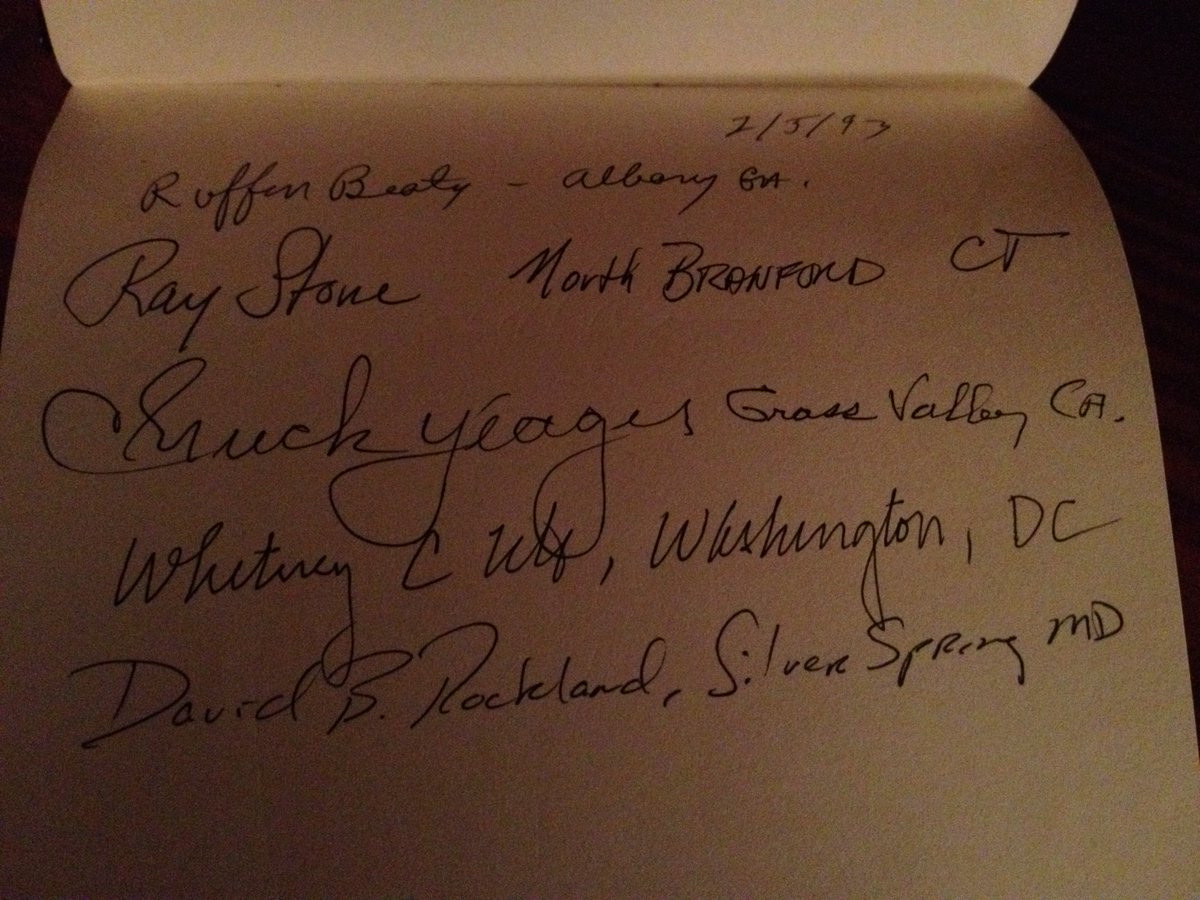 2/5/93
Ruffin Beaty - Albany GA.
Ray Stone North BRANFORD CT
Chuck Yeager Grass Valley CA.
Whitney C , Washington, DC
David B. Rockland, Silver Spring MD